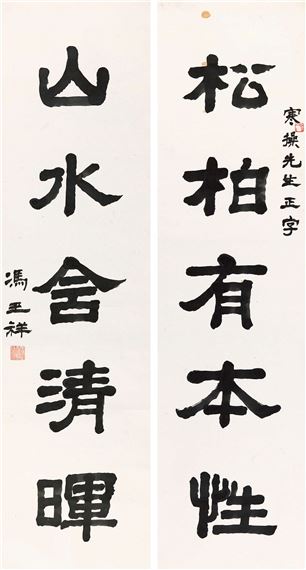 寒操先生正字
松柏有本性
山水含清暉
馮玉祥